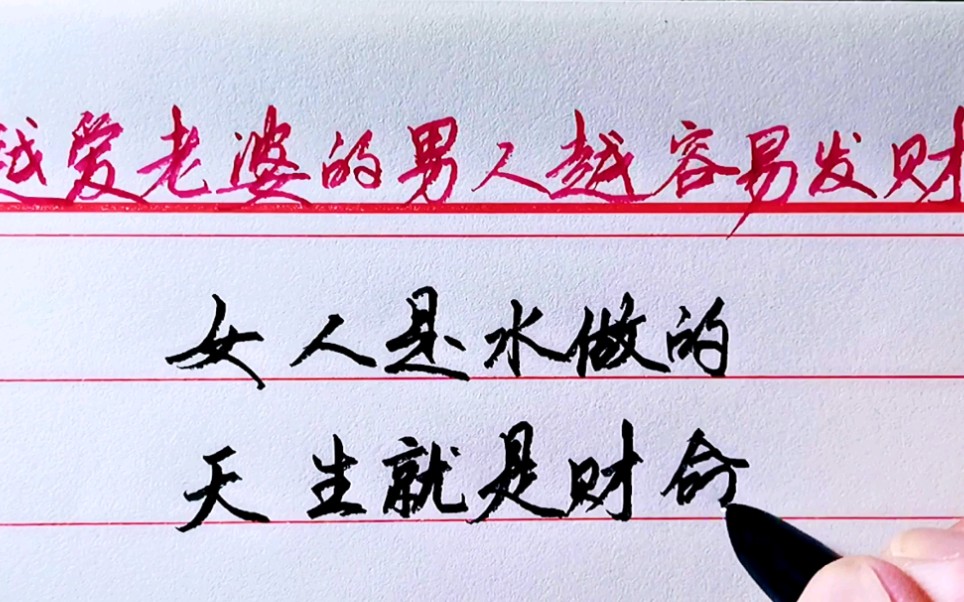 越爱老婆的男人越容易发财
女人是水做的
天生就是财命